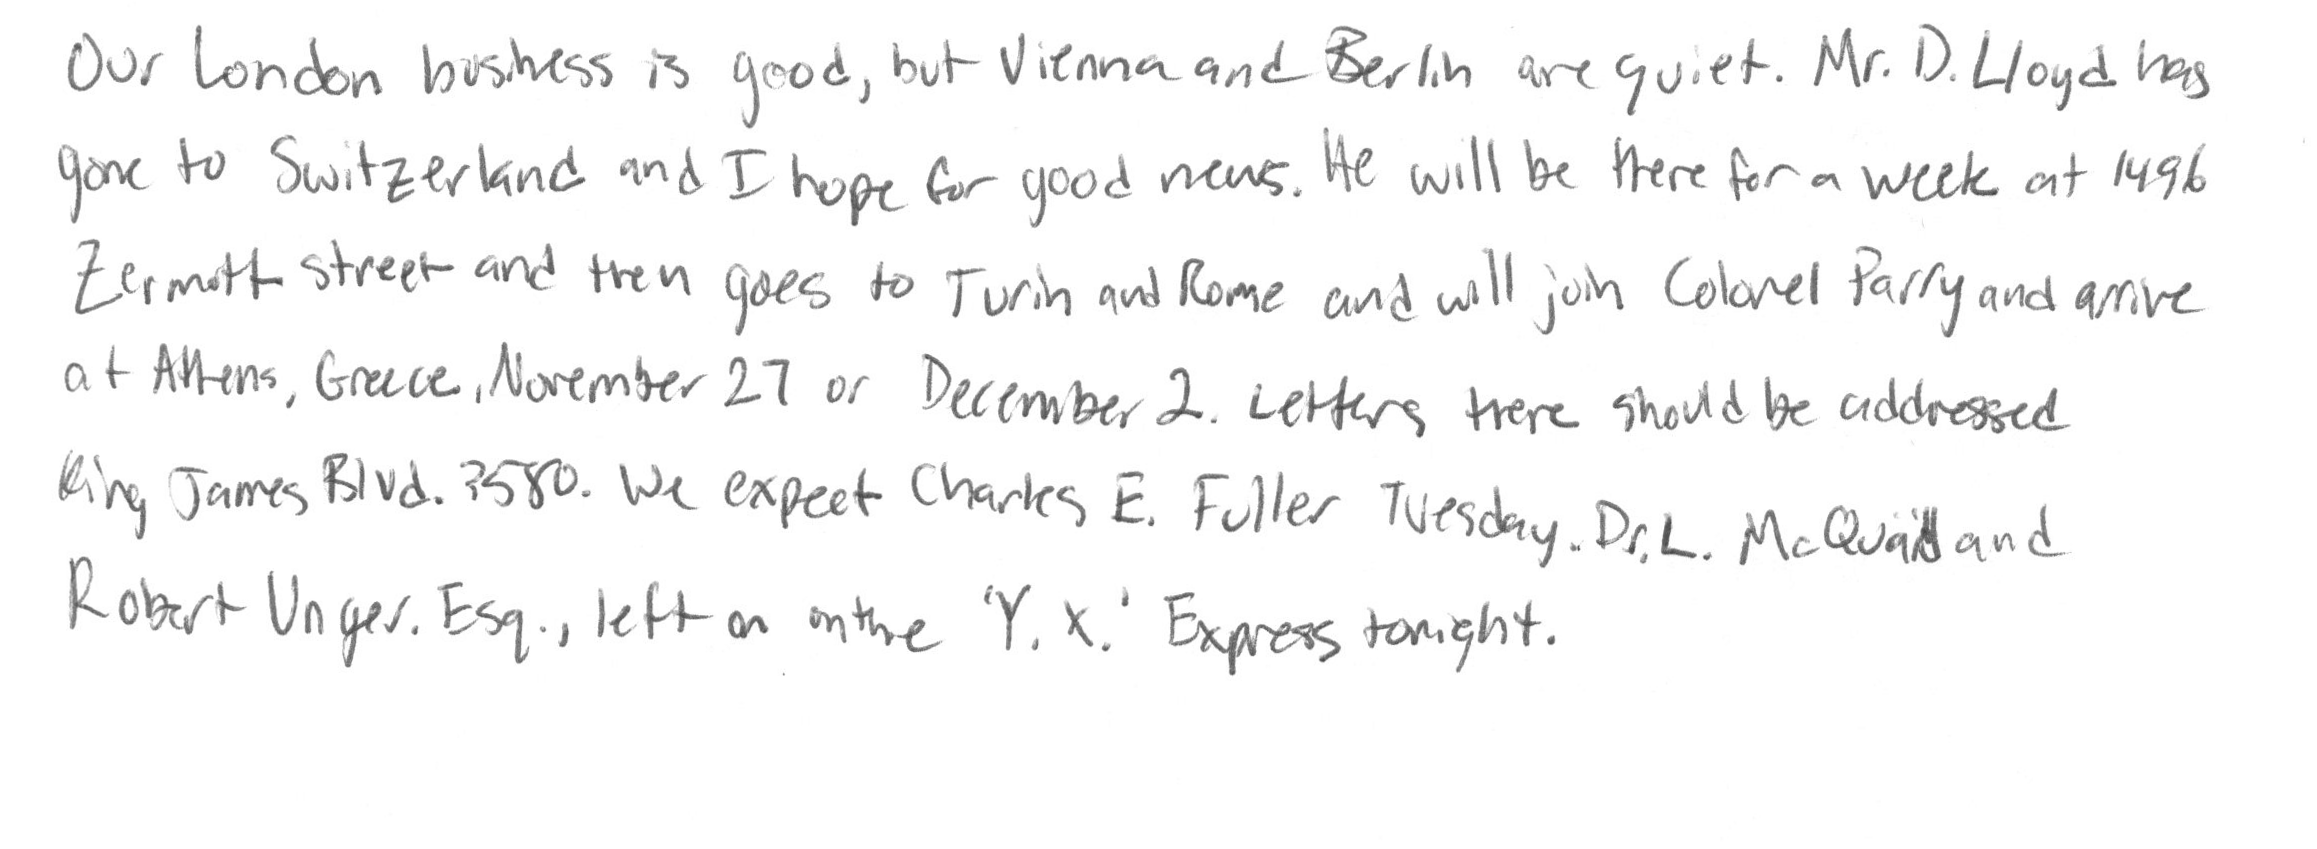 Our London business is good, but Vienna and Berlin are quiet. Mr. D. Lloyd has
gone to Switzerland and I hope for good news. He will be there for a week at 1496
Zermott street and then goes to Turin and Rome and will join Colonel Parry and arrive
at Athens, Greece, November 27 or December 2. Letters there should be addressed
King James Blvd. 3580. We expect Charles E. Fuller Tuesday. Dr. L. McQuaid and
Robert Unger. Esq., left on on the 'Y. X.' Express tonight.